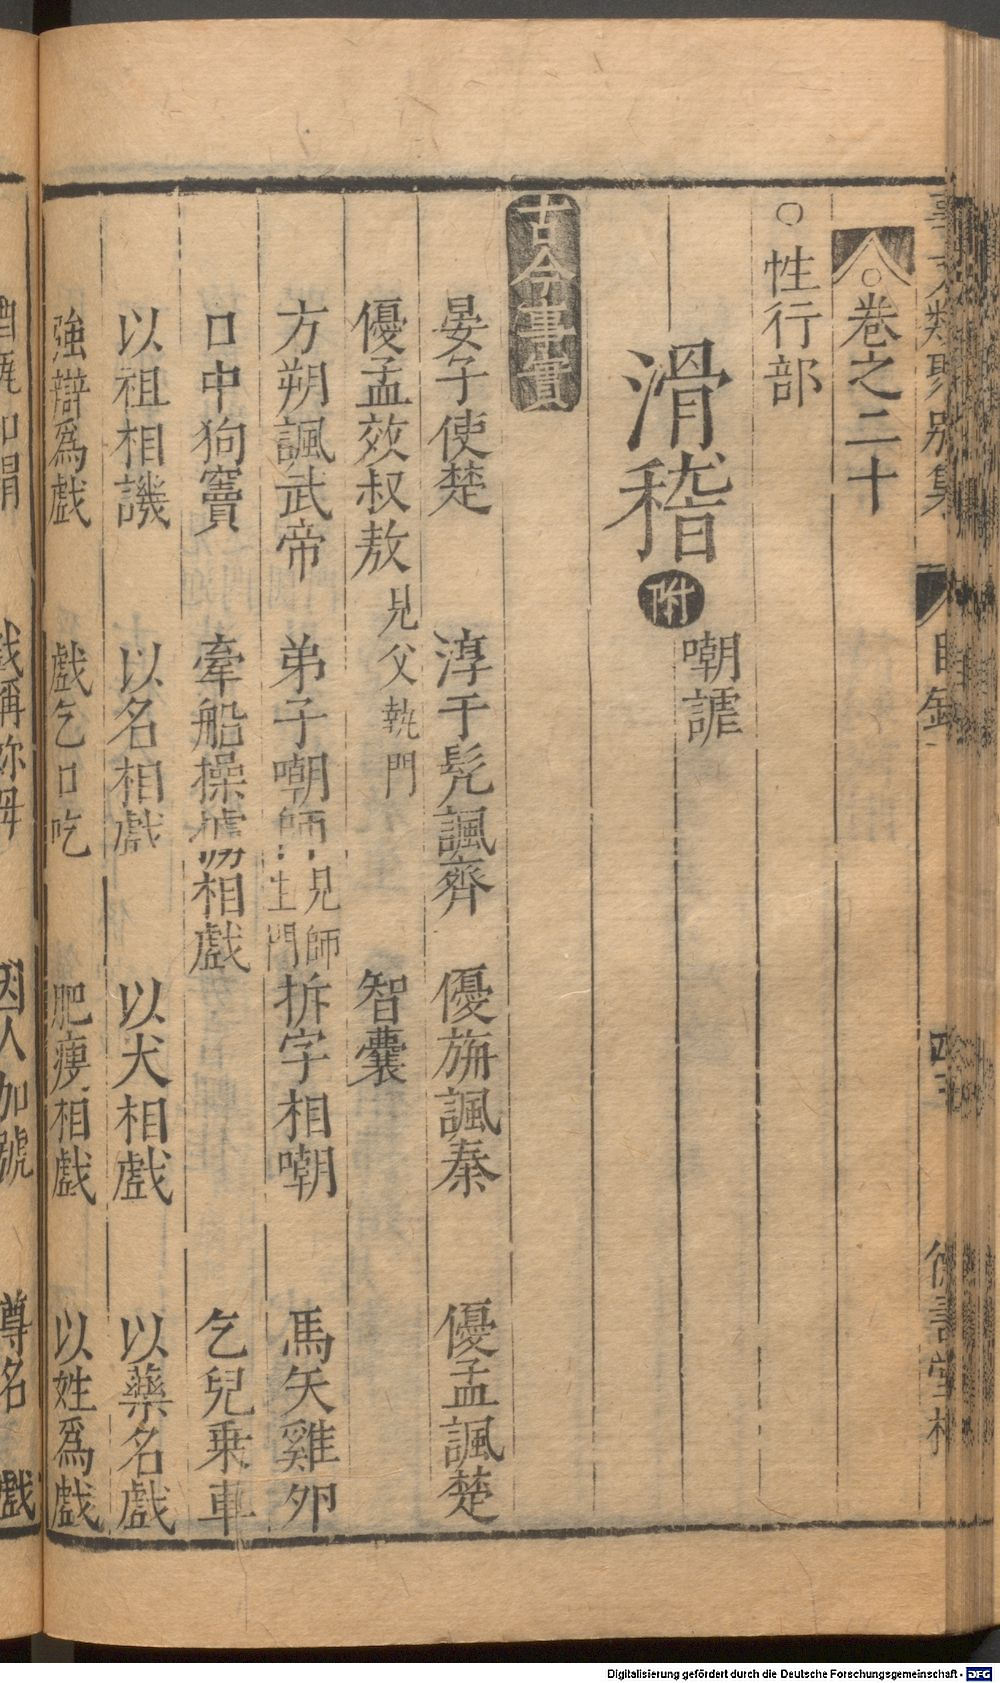 事文類聚別集
目錄
德壽堂梓
○卷之二十
○性行部
滑稽 附 嘲謔
古今事實
晏子使楚 淳于髡諷齊 優旃諷秦 優孟諷楚
優孟效叔敖 見父執門 智囊
方朔諷武帝 弟子嘲師 見師生門 拆字相嘲 馬矢雞卵
口中狗竇 牽船操櫓 物相戲 乞兒乗車
以祖相譏 以名相戲 以犬相戲 以藥名戲
強辯爲戯 戲乞口吃 肥瘦相戲 以姓爲戲
戲稱祢母 因人加號 尊名 戲
Digitalisierung gefördert durch die Deutsche Forschungsgemeinschaft - DFG